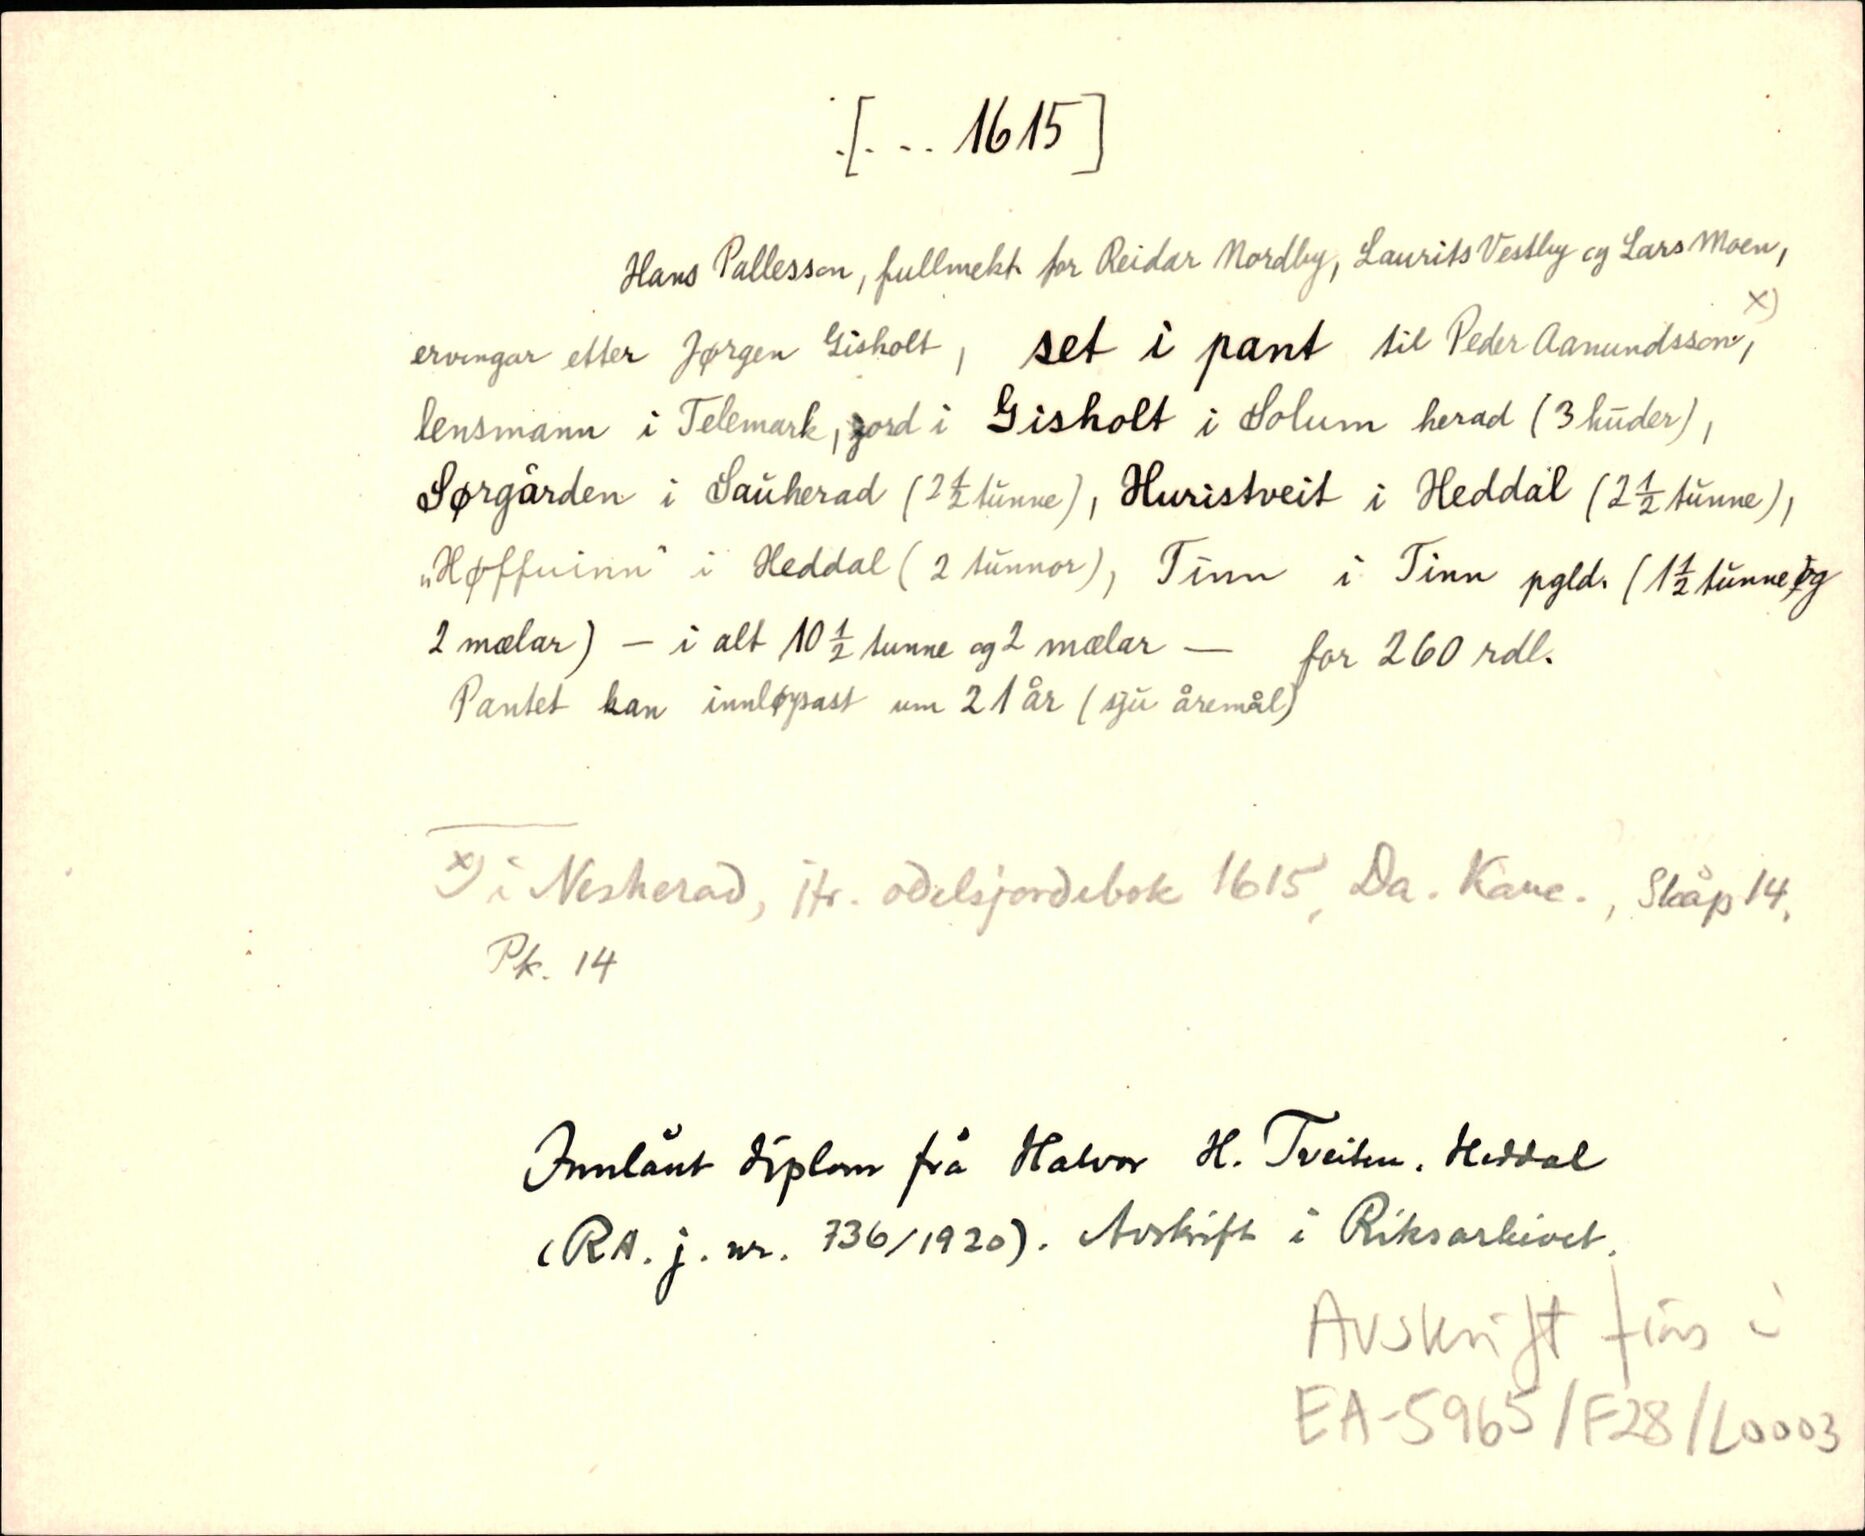 [. . . 1615]
Hans Pallesson, fullmekt. for Reidar Nordby, Laurits Vestby og Lars Moen,
ervingar etter Jørgen Gisholt, set i pant til Peder Aanundsson, x)
lensmann i Telemark, jord i Gisholt i Solum herad (3 huder),
Sørgården i Sauherad (2 1/2 tunne), Huristveit i Heddal (2 1/2 tunne),
„Høffuinn" i Heddal (2 tunnor), Tinn i Tinn pgld. (1 1/2 tunne og
2 mælar) — i alt 10 1/2 tunne og 2 mælar — for 260 rdl.
Pantet kan innløysast um 21 år (sju åremål)
x) i Nesherad, jfr. odelsjordebok 1615, Da. Kanc., Skåp 14,
Pk. 14
Innlånt diplom frå Halvor H. Tveiten, Heddal
(RA. j. nr. 736/1920). Avskrift i Riksarkivet.
Avskrift fins i
EA-5965/F28/L0003